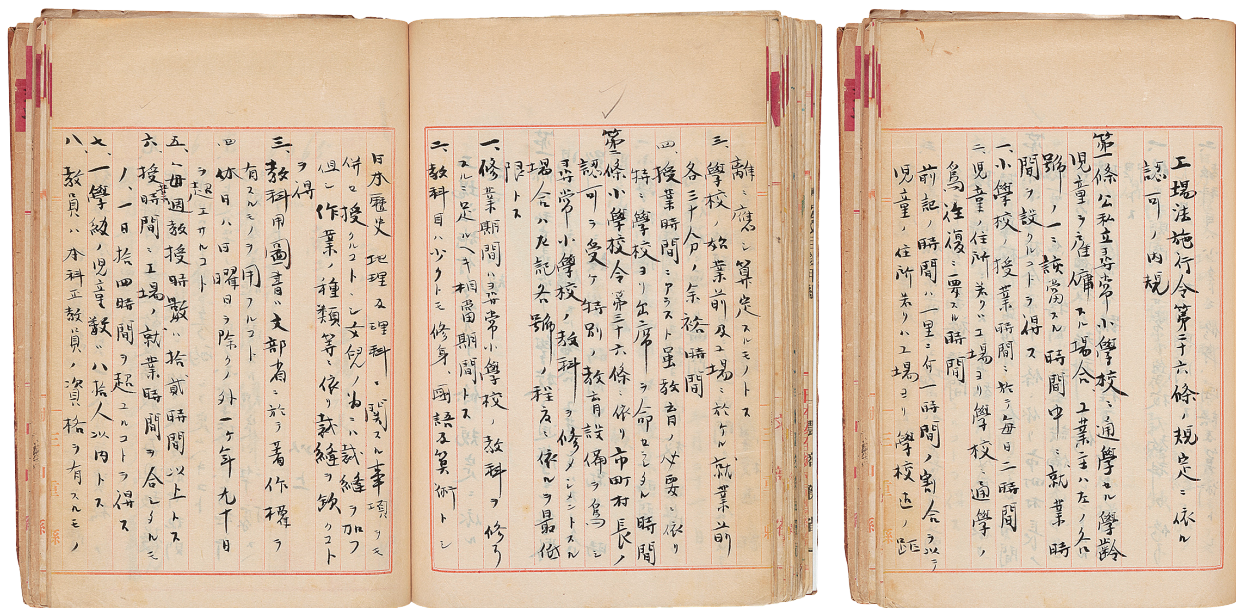 工場法施行令第二十六條ノ規定ニ依ル
認可ノ内規
第一條公私立尋常小學校ニ通學セル學齡
兒童ヲ雇傭スル場合工業主ハ左ノ各
號ノ一ニ該當スル時間中ニ就業時
間ヲ設クルコトヲ得ス
一、小學校ノ授業時間ニ於テ毎日二時間
二、兒童ノ住所若クハ工場ヨリ學校ニ通學ノ
爲往復ニ要スル時間
前記ノ時間ハ一里ニ付一時間ノ割合ヲ以テ
兒童ノ住所若クハ工場ヨリ學校迄ノ距
離ニ應シ算定スルモノトス
三、學校ノ始業前及工場ニ於ケル就業前
各三十分ノ余裕時間
四、授業時間ニアラスト雖教育ノ必要ニ依リ
特ニ學校ヨリ出席ヲ命セシメタル時間
第二條小學校令第三十六條ニ依リ市町村長ノ
認可ヲ受ケ特別ノ教育設備ヲ爲シ
尋常小學校ノ教科ヲ修メシメントスル
場合ハ左記各號ノ程度ニ依ルヲ最低
限トス
一、修業期間ハ尋常小學校ノ教科ヲ修了
スルニ足ルヘキ相當期間トス
二、教科目ハ少クトモ修身、國語及算術トシ
日本歴史、地理及理科ニ関スル事項ヲモ
併セ授クルコトトシ女兒ノ爲ニハ裁縫ヲ加フ
但シ作業ノ種類等ニ依リ裁縫ヲ欽クコト
ヲ得
三、教科用圖書ハ文部省ニ於テ著作權ヲ
有スルモノヲ用フルコト
四、休日ハ日曜日ヲ除クノ外一ケ年九十日
ヲ超エサルコト
五、毎週教授時數ハ拾貳時間以上トス
六、授業時間ニ工場ノ就業時間ヲ合シタルモ
ノ、一日拾四時間ヲ超ユルコトヲ得ス
七、一學級ノ兒童數ハ八拾人以内トス
八、教員ハ本科正教員ノ資格ヲ有スルモノ